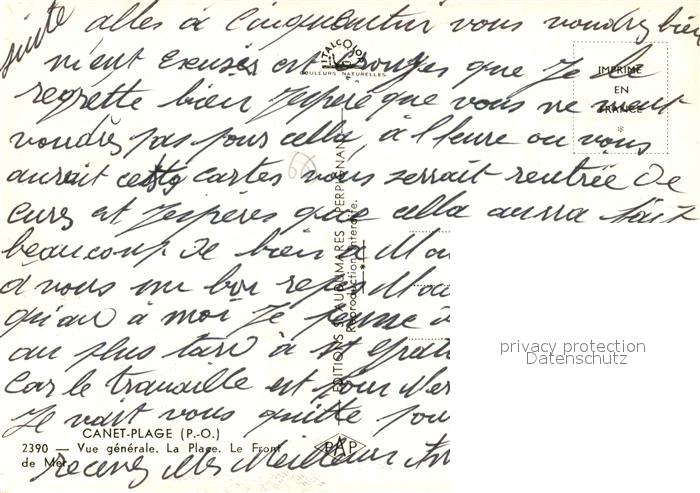 suite alles à vous voudrez bien
m'ent Excusés et croiyes que Je Le
regrette bien Jespére que vous ne ment
voudrés pas pour cella, à l'heure ou vous
aurait cette cartes vous serrait rentrée De
Cures et Jespéres que cella aurra fait
beaucoup De bien à
a vous un bon repos
qu'an à moi Je pense à
au plus tard à St
Car le travaille est pour
Je vait vous quitte pour
recevez Mes Meilleurs
ITALCOLOR
COULEURS NATURELLES
IMPRIMÉ
EN
FRANCE
*
ÉDITIONS S. AUDUMARES - PERPIGNAN
Reproduction interdite.
CANET-PLAGE (P.-O.)
2390 — Vue générale. La Place. Le Front
de Mer.
PAP
privacy protection
Datenschutz